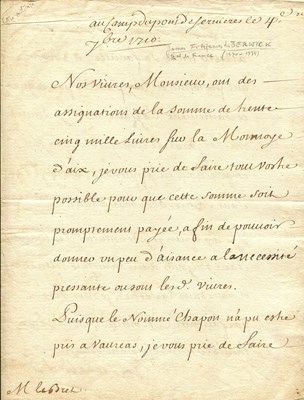 au Camp du pont de Servieres le 4e
7bre 1710.
Nos vivres, Monsieur, ont des
assignations de la somme de trente
cinq mille Livres sur la Monnoye
d'aix, je vous prie de faire tout vostre
possible pour que cette somme soit
promptement payée, afin de pouvoir
donner un peu d'aisance a la necessité
pressante ou sont les d. vivres.
Puisque le Nommé Chapon n'a pu estre
pris a Vaureas, je vous prie de faire
M. le Bret